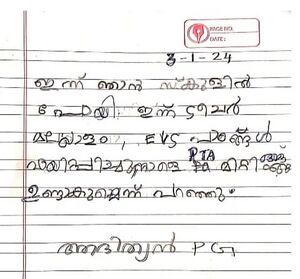 PAGE NO.
DATE:
3-1-24
ഇന്ന് ഞാൻ സ്കൂളിൽ
പോയി. ഇന്ന് ടീച്ചർ
മലയാളം, EVS പാഠങ്ങൾ
PTA
മീറ്റിങ്
ഉണ്ടാകുമെന്ന് പറഞ്ഞു.
ആദിത്യൻ P G